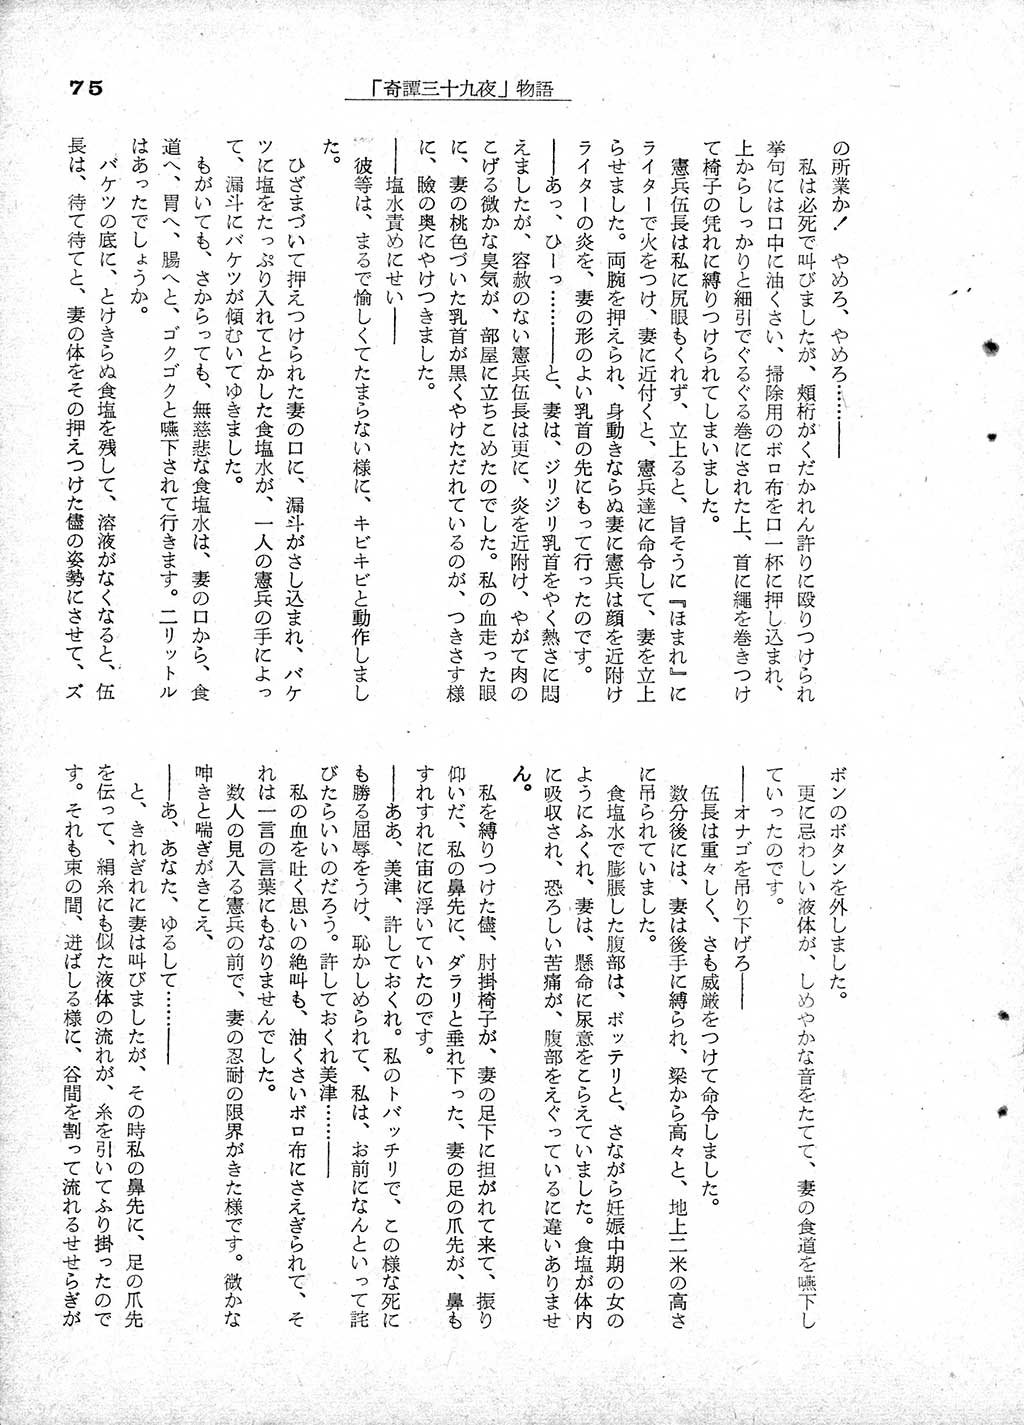 75
「奇譚三十九夜」物語
の所業か！　やめろ、やめろ………――
　私は必死で叫びましたが、頰桁がくだかれん許りに殴りつけられ
挙句には口中に油くさい、掃除用のボロ布を口一杯に押し込まれ、
上からしっかりと細引でぐるぐる巻にされた上、首に縄を巻きつけ
て椅子の凭れに縛りつけられてしまいました。
　憲兵伍長は私に尻眼もくれず、立上ると、旨そうに『ほまれ』に
ライターで火をつけ、妻に近付くと、憲兵達に命令して、妻を立上
らせました。両腕を押えられ、身動きならぬ妻に憲兵は顔を近附け
ライターの炎を、妻の形のよい乳首の先にもって行ったのです。
――あっ、ひーっ………――と、妻は、ジリジリ乳首をやく熱さに悶
えましたが、容赦のない憲兵伍長は更に、炎を近附け、やがて肉の
こげる微かな臭気が、部屋に立ちこめたのでした。私の血走った眼
に、妻の桃色づいた乳首が黒くやけただれているのが、つきさす様
に、瞼の奥にやけつきました。
――塩水責めにせい――
　彼等は、まるで愉しくてたまらない様に、キビキビと動作しまし
た。
　ひざまづいて押えつけられた妻の口に、漏斗がさし込まれ、バケ
ツに塩をたっぷり入れてとかした食塩水が、一人の憲兵の手によっ
て、漏斗にバケツが傾むいてゆきました。
　もがいても、さからっても、無慈悲な食塩水は、妻の口から、食
道へ、胃へ、腸へと、ゴクゴクと嚥下されて行きます。二リットル
はあったでしょうか。
　バケツの底に、とけきらぬ食塩を残して、溶液がなくなると、伍
長は、待て待てと、妻の体をその押えつけた儘の姿勢にさせて、ズ
ボンのボタンを外しました。
　更に忌わしい液体が、しめやかな音をたてて、妻の食道を嚥下し
ていったのです。
――オナゴを吊り下げろ――
　伍長は重々しく、さも威厳をつけて命令しました。
　数分後には、妻は後手に縛られ、梁から高々と、地上二米の高さ
に吊られていました。
　食塩水で膨脹した腹部は、ボッテリと、さながら妊娠中期の女の
ようにふくれ、妻は、懸命に尿意をこらえていました。食塩が体内
に吸収され、恐ろしい苦痛が、腹部をえぐっているに違いありませ
ん。
　私を縛りつけた儘、肘掛椅子が、妻の足下に担がれて来て、振り
仰いだ、私の鼻先に、ダラリと垂れ下った、妻の足の爪先が、鼻も
すれすれに宙に浮いていたのです。
――ああ、美津、許しておくれ。私のトバッチリで、この様な死に
も勝る屈辱をうけ、恥かしめられて、私は、お前になんといって詫
びたらいいのだろう。許しておくれ美津………――
　私の血を吐く思いの絶叫も、油くさいボロ布にさえぎられて、そ
れは一言の言葉にもなりませんでした。
　数人の見入る憲兵の前で、妻の忍耐の限界がきた様です。微かな
呻きと喘ぎがきこえ、
――あ、あなた、ゆるして………――
　と、きれぎれに妻は叫びましたが、その時私の鼻先に、足の爪先
を伝って、絹糸にも似た液体の流れが、糸を引いてふり掛ったので
す。それも束の間、迸ばしる様に、谷間を割って流れるせせらぎが